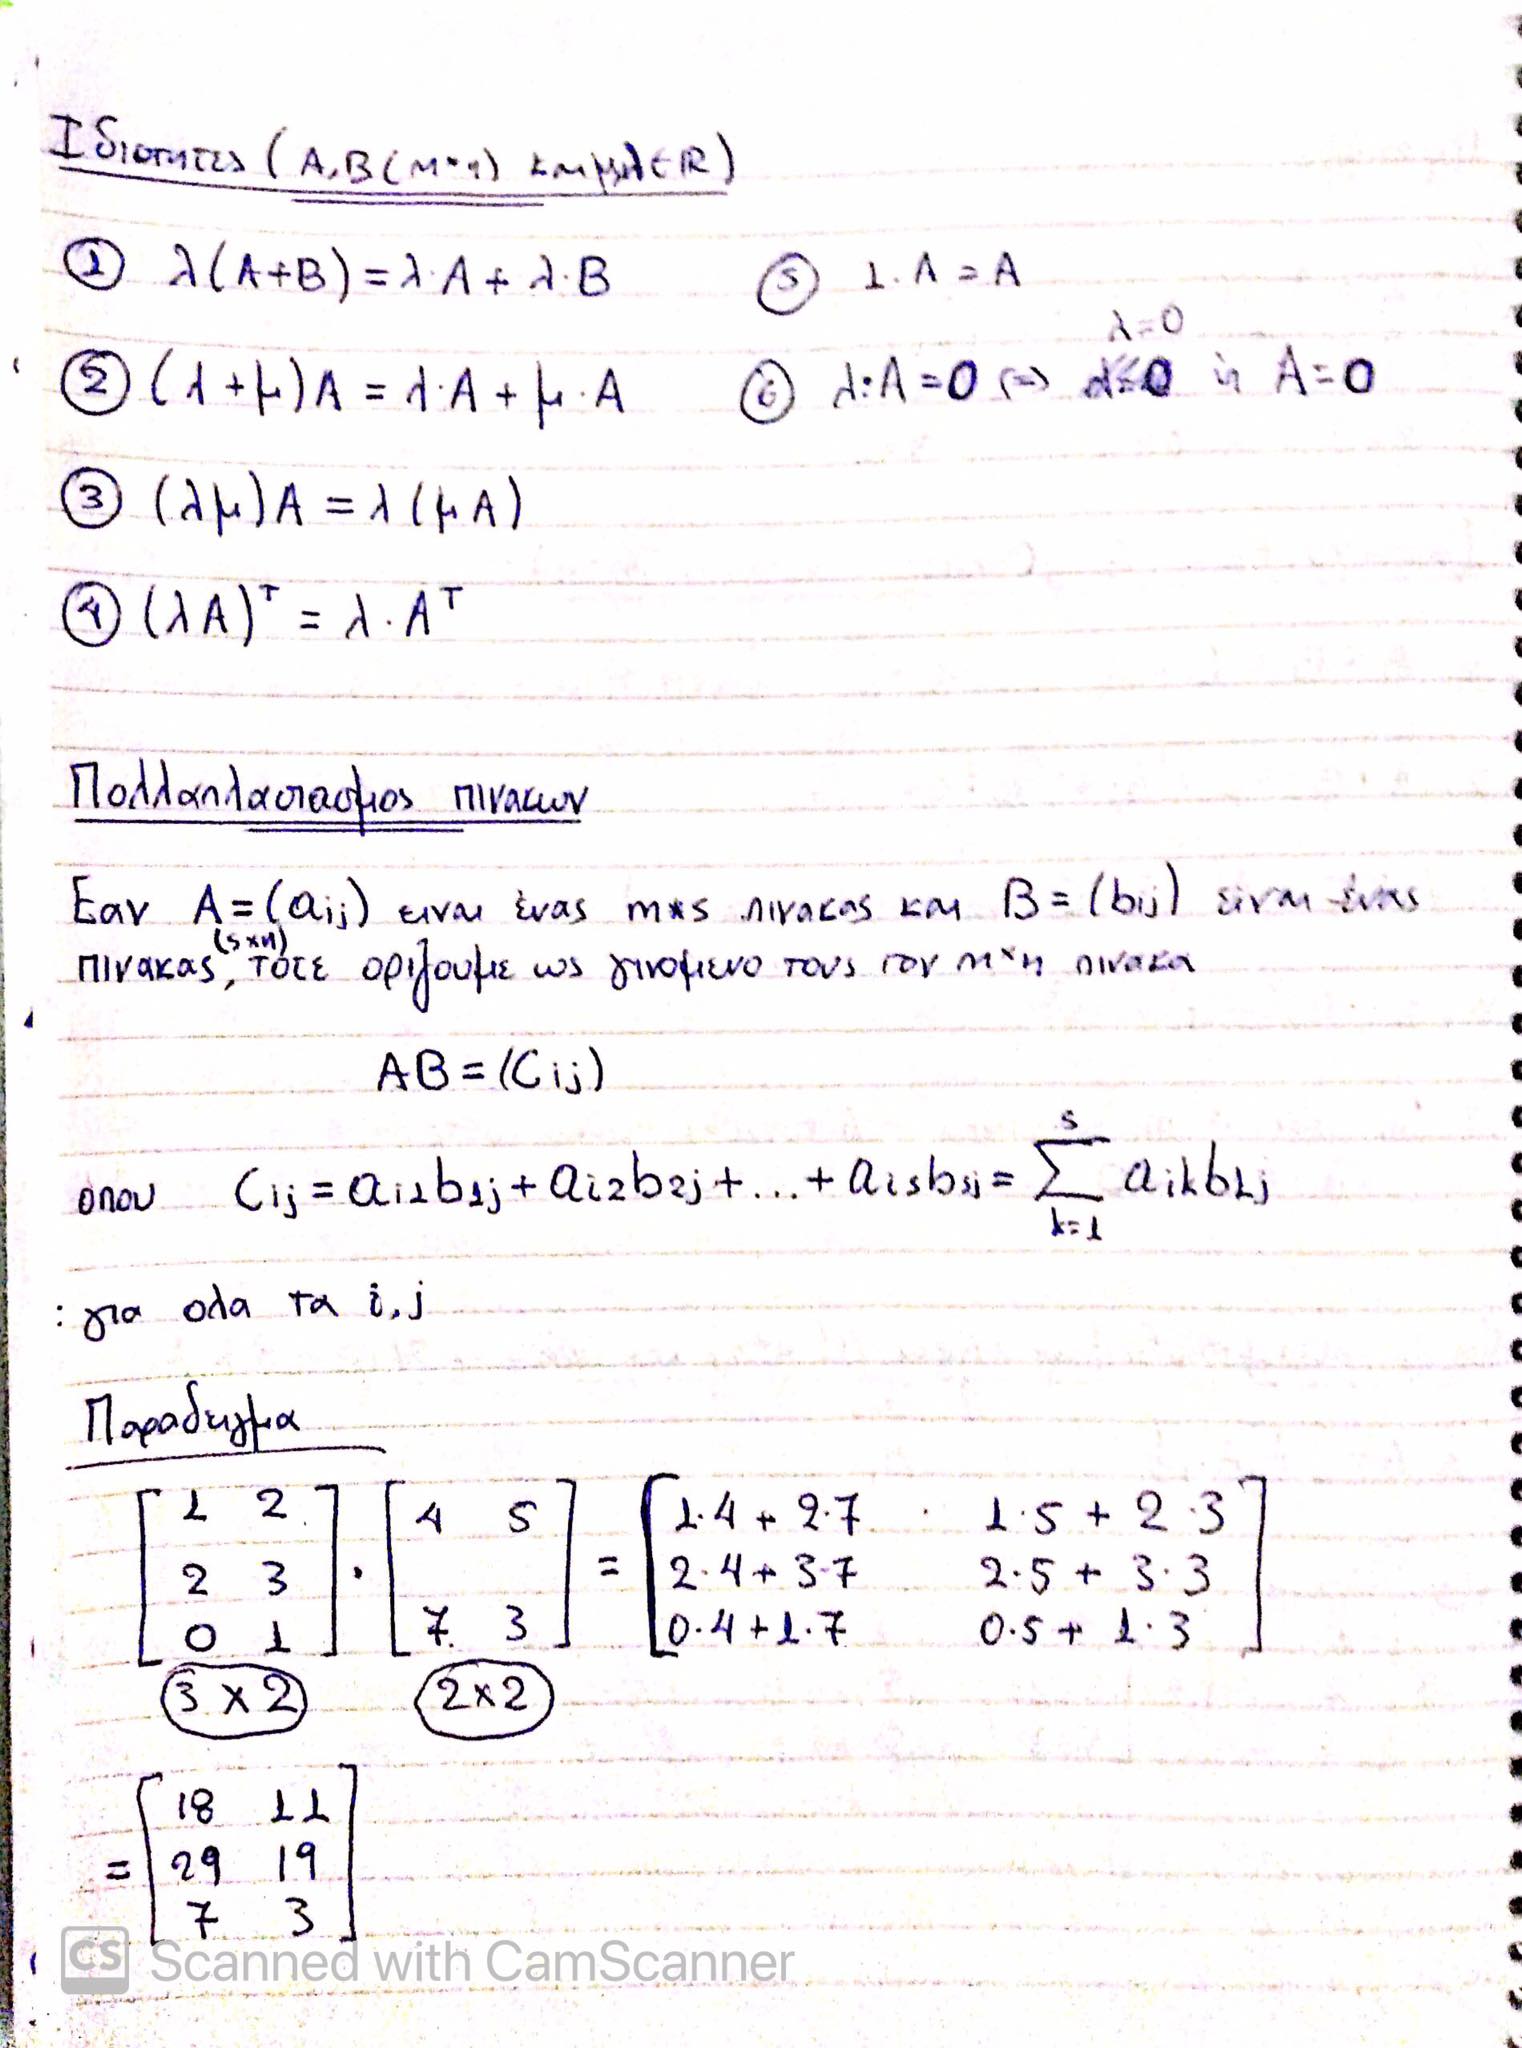 Ιδιοτητες (A,B (m×n) και μ,λ∈ℝ)
① λ(A+B)=λ·A+λ·B ⑤ 1·A=A
λ=0
② (λ+μ)A=λ·A+μ·A ⑥ λ·A=0 <=> ή A=0
③ (λμ)A=λ(μA)
④ (λA)ᵀ=λ·Aᵀ
Πολλαπλασιασμος πινακων
Εαν A=(aij) ειναι ένας m×s πινακας και B=(bij) ειναι ένας
(s×n)
πινακας, τότε οριζουμε ως γινομενο τους τον m×n πινακα
AB=(Cij)
οπου Cij=ai1b1j+ai2b2j+...+aisbsj= s Σ k=1 aikbkj
: για ολα τα i,j
Παραδειγμα
[1 2 · 4 5 = 1·4+2·7 1·5+2·3]
[2 3 2·4+3·7 2·5+3·3]
[0 1 7 3 0·4+1·7 0·5+1·3]
3×2 2×2
[18 11]
= [29 19]
[7 3]
CS Scanned with CamScanner